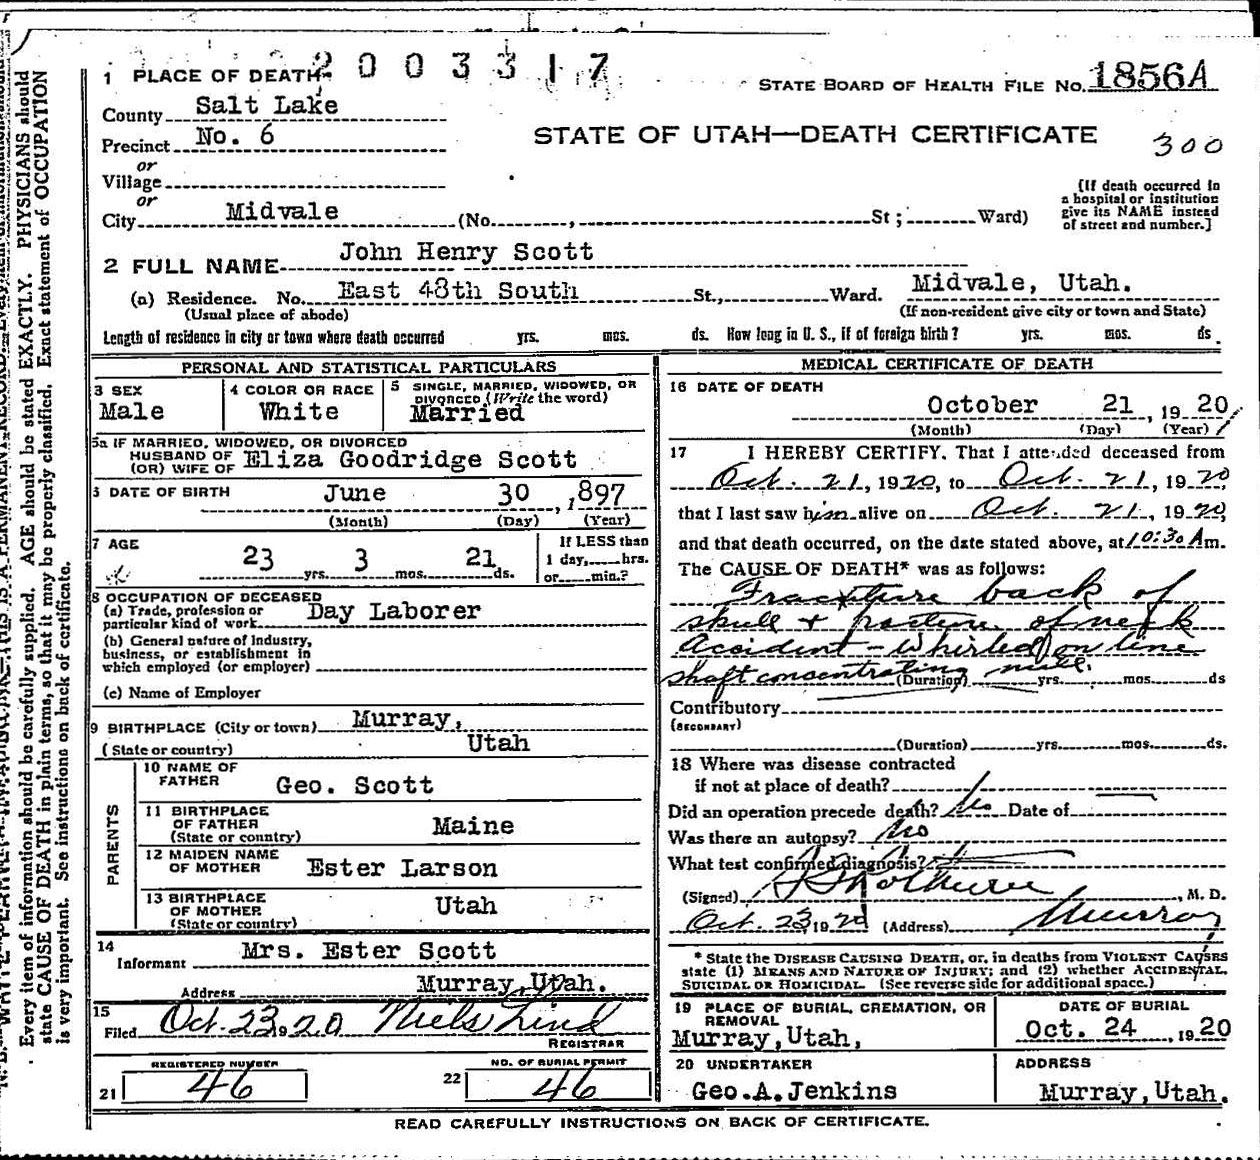 2003317
1 PLACE OF DEATH
STATE BOARD OF HEALTH FILE No. 1856A
County Salt Lake
Precinct No. 6
STATE OF UTAH—DEATH CERTIFICATE
300
or
Village
or
City Midvale (No. , St ; Ward)
[If death occurred in
a hospital or institution
give its NAME instead
of street and number.]
2 FULL NAME John Henry Scott
(a) Residence. No. East 48th South St., Ward. Midvale, Utah.
(Usual place of abode) (If non-resident give city or town and State)
Length of residence in city or town where death occurred yrs. mos. ds. How long in U. S., if of foreign birth? yrs. mos. ds.
PERSONAL AND STATISTICAL PARTICULARS
3 SEX
Male
4 COLOR OR RACE
White
5 SINGLE, MARRIED, WIDOWED, OR
DIVORCED (Write the word)
Married
5a IF MARRIED, WIDOWED, OR DIVORCED
HUSBAND OF
(OR) WIFE OF Eliza Goodridge Scott
6 DATE OF BIRTH June 30 , 897
(Month) (Day) (Year)
7 AGE
23 yrs. 3 mos. 21 ds.
If LESS than
1 day, hrs.
or min.?
8 OCCUPATION OF DECEASED
(a) Trade, profession or
particular kind of work Day Laborer
(b) General nature of Industry,
business, or establishment in
which employed (or employer)
(c) Name of Employer
9 BIRTHPLACE (City or town) Murray,
(State or country) Utah
PARENTS
10 NAME OF
FATHER Geo. Scott
11 BIRTHPLACE
OF FATHER
(State or country) Maine
12 MAIDEN NAME
OF MOTHER Ester Larson
13 BIRTHPLACE
OF MOTHER
(State or country) Utah
14
Informant Mrs. Ester Scott
Address Murray, Utah.
15
Filed Oct. 23 1920 Niels Lind
REGISTRAR
REGISTERED NUMBER
21 46
NO. OF BURIAL PERMIT
22 46
MEDICAL CERTIFICATE OF DEATH
16 DATE OF DEATH
October 21 , 1920
(Month) (Day) (Year)
17 I HEREBY CERTIFY, That I attended deceased from
Oct. 21, 1920, to Oct. 21, 1920,
that I last saw him alive on Oct. 21, 1920,
and that death occurred, on the date stated above, at 10:30 Am.
The CAUSE OF DEATH* was as follows:
Fracture back of
skull + fracture of neck
Accident - Whirled on line
shaft concentrating mill.
(Duration) yrs. mos. ds
Contributory
(SECONDARY)
(Duration) yrs. mos. ds.
18 Where was disease contracted
if not at place of death?
Did an operation precede death? No Date of
Was there an autopsy? No
What test confirmed diagnosis?
(Signed) , M. D.
Oct. 23, 1920 (Address) Murray
* State the DISEASE CAUSING DEATH, or, in deaths from VIOLENT CAUSES
state (1) MEANS AND NATURE OF INJURY; and (2) whether ACCIDENTAL,
SUICIDAL OR HOMICIDAL. (See reverse side for additional space.)
19 PLACE OF BURIAL, CREMATION, OR
REMOVAL
Murray, Utah,
DATE OF BURIAL
Oct. 24 , 1920
20 UNDERTAKER
Geo. A. Jenkins
ADDRESS
Murray, Utah.
READ CAREFULLY INSTRUCTIONS ON BACK OF CERTIFICATE.
Every item of information should be carefully supplied. AGE should be stated EXACTLY. PHYSICIANS should
state CAUSE OF DEATH in plain terms, so that it may be properly classified. Exact statement of OCCUPATION
is very important. See instructions on back of certificate.